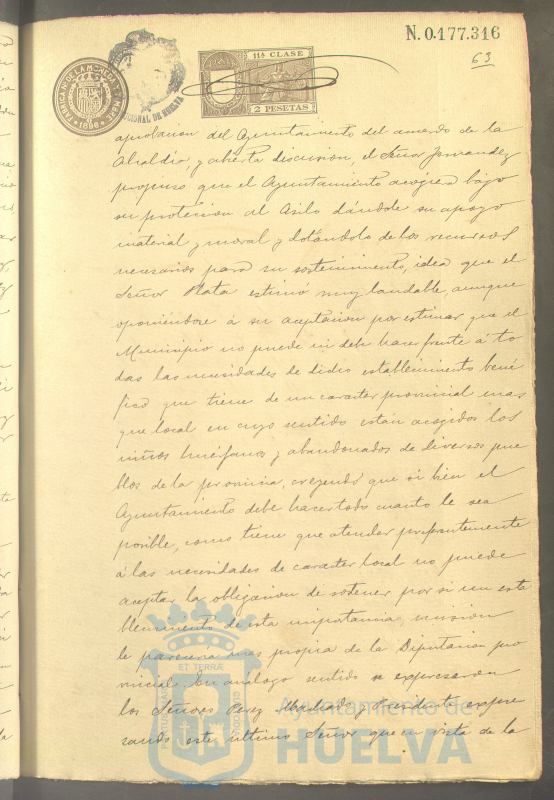 N. 0.177.316
63
FABRICA Nal DE LA MONEDA Y TIMBRE
1896
11ª CLASE
2 PESETAS
CIONAL DE HUELVA
aprobacion del Ayuntamiento del acuerdo de la
Alcaldia, y abierta discusion, el Señor Fernandez
propuso que el Ayuntamiento acogiera bajo
su proteccion al Asilo dándole su apoyo
material y moral y dotándolo de los recursos
necesarios para su sostenimiento, idea que el
Señor Mata estimó muy laudable aunque
oponiéndose á su aceptacion por estimar que el
Municipio no puede ni debe hacer frente á to
das las necesidades de dicho establecimiento bené
fico que tiene de un caracter provincial mas
que local en cuyo sentido están acogidos los
niños huérfanos y abandonados de diversos pue
blos de la provincia, creyendo que si bien el
Ayuntamiento debe hacer todo cuanto le sea
posible, como tiene que atender preferentemente
á las necesidades de caracter local no puede
aceptar la obligacion de sostener por si un esta
blecimiento de esta importancia, mision
le pareceria mas propia de la Diputacion pro
vincial. En análogo sentido se expresaron
los Señores Perez Machado y Presidente expre
sando este último Señor que en vista de la
ET TERRÆ
Ayuntamiento de
HUELVA